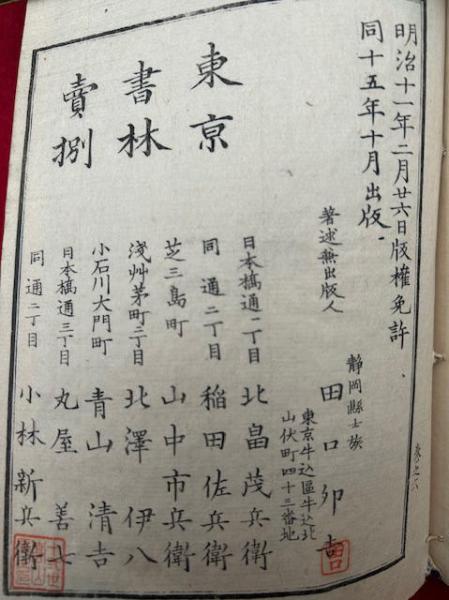 明治十一年二月廿六日版權免許
同十五年十月出版
著述兼出版人
靜岡縣士族
田口卯吉
東京牛込區牛込北
山伏町四十三番地
東京
書林
賣捌
日本橋通一丁目 北畠茂兵衛
同 通二丁目 稲田佐兵衛
芝三島町 山中市兵衛
淺艸茅町二丁目 北澤伊八
小石川大門町 青山清吉
日本橋通三丁目 丸屋善七
同 通二丁目 小林新兵衛